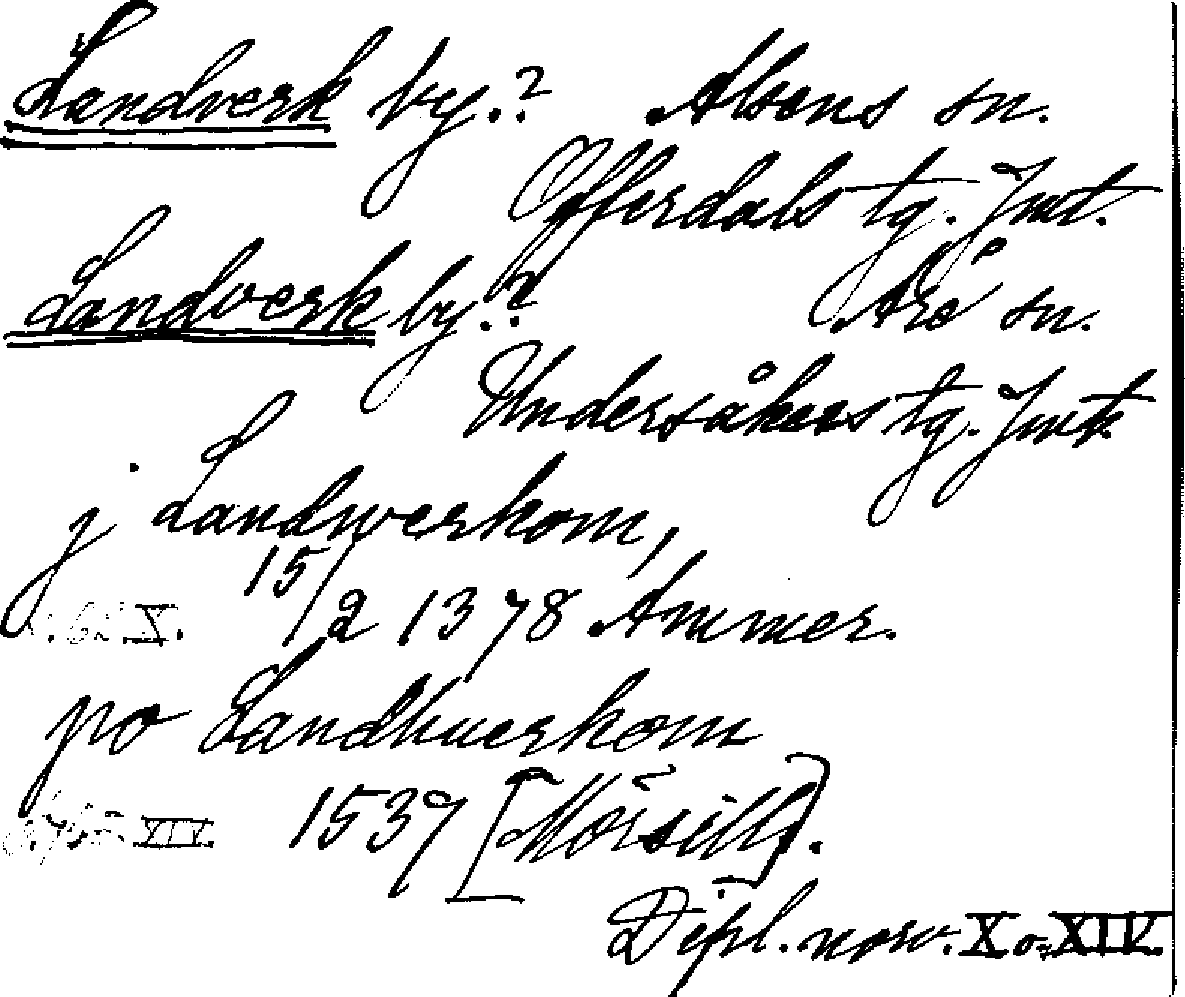 Landverk by.? Alsens sn.
Offerdals tg. Jmt.
Landverk by.? Åre sn.
Undersåkers tg. Jmt.
j Landwerkom,
X. 15/2 1378 Ammer.
po Landhuerkom
XIV. 1537 [Mörsill].
Dipl. norv. X o. XIV.